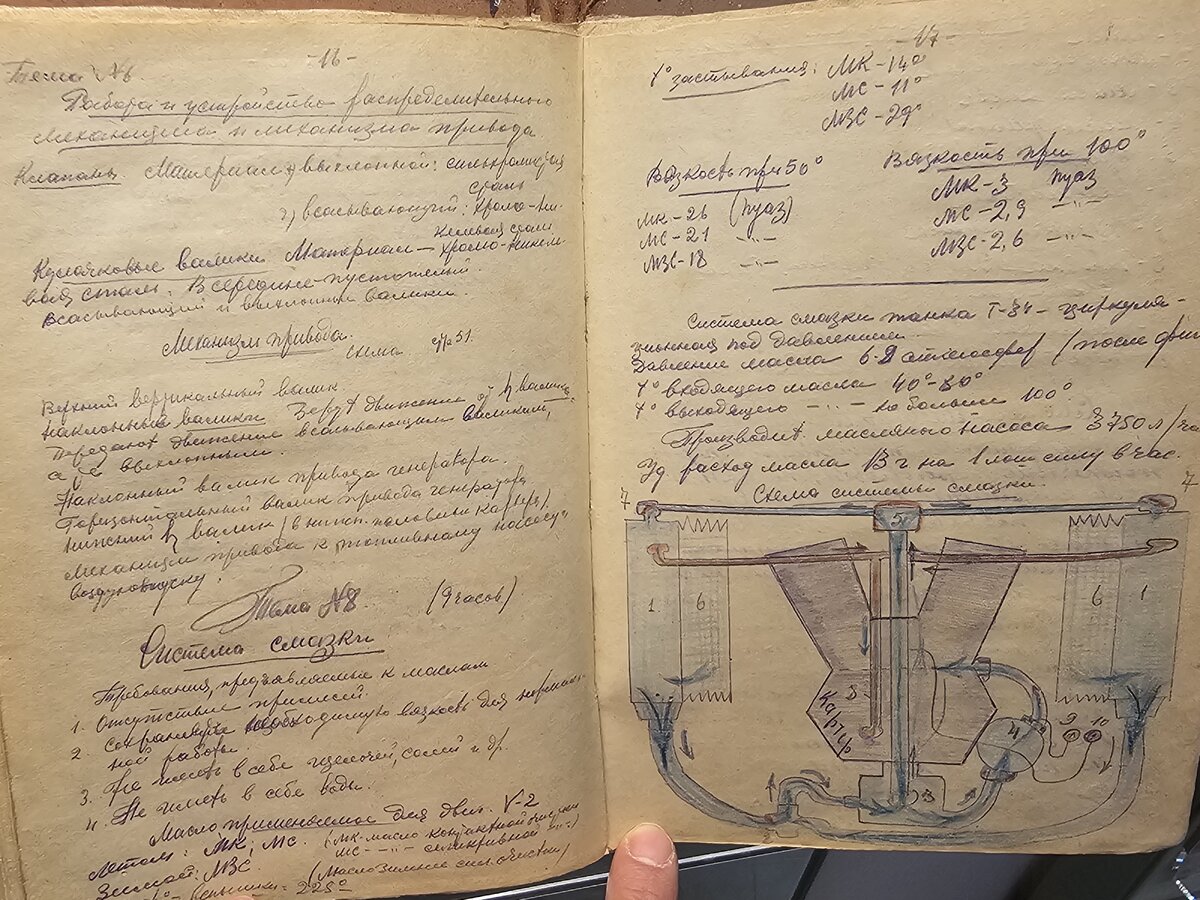 -16-
Тема №6.
Работа и устройство распределительного
механизма и механизма привода
Клапаны Материал выхлопной: сильхромистая
сталь
2) всасывающий: хромо-ни-
келевая сталь
Кулачковые валики Материал — хромо-никеле-
вая сталь. В середине-пустотелый.
Всасывающий и выхлопной валики.
Механизм привода.
схема стр 51.
Верхний вертикальный валик.
Наклонные валики Берут движение от валика
передают движение всасывающим валикам,
а выхлопным.
Наклонный валик привода генератора.
Горизонтальный валик привода генератора
Нижний валик (в нижн. половине картера)
Механизм привода к топливному насосу и
воздухопуску.
Тема №8 (9 часов)
Система смазки
Требования, предъявляемые к маслам
1. Отсутствие примесей.
2. Сохранение необходимую вязкость для нормаль-
ной работы.
3. Не иметь в себе щелочей, солей и др.
4. Не иметь в себе воды.
Масло применяемое для двиг. V-2
Летом: МК; МС. (МК-масло контактной очистки
МС -"- селективной -"-)
Зимой: МЗС (Масло зимнее сел. очистки)
t° вспышки = 225°
-17-
t° застывания: МК-14°
МС-11°
МЗС-29°
Вязкость при 50°
МК-26 (пуаз)
МС-21 -"-
МЗС-18 -"-
Вязкость при 100°
МК-3 пуаз
МС-2,9 -"-
МЗС-2,6 -"-
Система смазки танка Т-34 - циркуля-
ционная под давлением.
Давление масла 6-9 атмосфер (после фил
t° входящего масла 40°-80°
t° выходящего -"- не больше 100°
Производит. масляного насоса 3750 л/ча
Уд. расход масла 13 г на 1 лош силу в час.
Схема системы смазки.
7 5 7
1 6 6 1
2
Картер
4 9 10
3